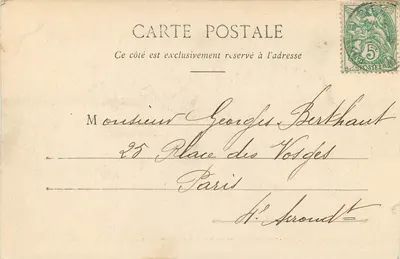 CARTE POSTALE
Ce côté est exclusivement réservé à l'adresse
5
Monsieur Georges Berthaut
25 Place des Vosges
Paris
4e Arrondt